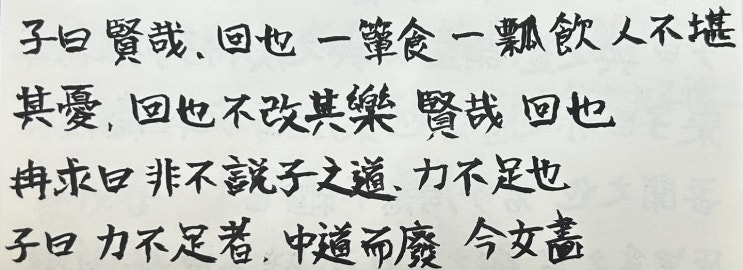 子曰 賢哉、回也 一簞食 一瓢飲 人不堪
其憂、回也不改其樂 賢哉 回也
冉求曰 非不說子之道、力不足也
子曰 力不足者、中道而廢 今女畫